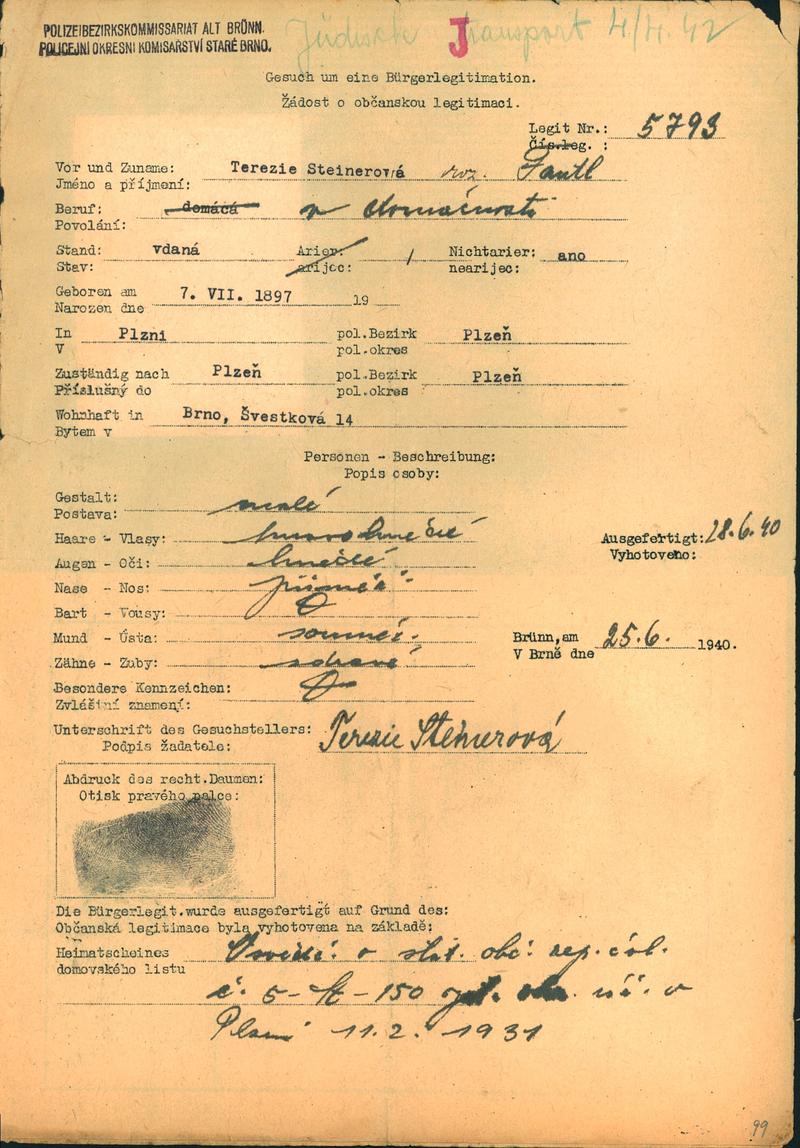 POLIZEIBEZIRKSKOMMISSARIAT ALT BRÜNN.
POLICEJNÍ OKRESNÍ KOMISAŘSTVÍ STARÉ BRNO.
J transport 4/4. 42
Gesuch um eine Bürgerlegitimation.
Žádost o občanskou legitimaci.
Legit Nr.: 5793
Čís.leg. :
Vor und Zuname: Terezie Steinerová roz. Fantl
Jméno a příjmení:
Beruf: domácá v domácnosti
Povolání:
Stand: vdaná Arier: / Nichtarier: ano
Stav: arijec: nearijec:
Geboren am 7. VII. 1897 19
Narozen dne
In Plzni pol.Bezirk Plzeň
V pol.okres
Zuständig nach Plzeň pol.Bezirk Plzeň
Příslušný do pol.okres
Wohnhaft in Brno, Švestková 14
Bytem v
Personen - Beschreibung:
Popis osoby:
Gestalt: malé
Postava:
Haare - Vlasy: tmavohnědé
Ausgefertigt: 28.6.40
Vyhotoveno:
Augen - Oči: hnědé
Nase - Nos: přímá
Bart - Vousy: 0
Mund - Ústa: souměr.
Zähne - Zuby: zdravé
Brünn,am 25.6. 1940.
V Brně dne
Besondere Kennzeichen: 0
Zvláštní znamení:
Unterschrift des Gesuchstellers: Terezie Steinerová
Podpis žadatele:
Abdruck des recht.Daumen:
Otisk pravého palce:
Die Bürgerlegit.wurde ausgefertigt auf Grund des:
Občanská legitimace byla vyhotovena na základě:
Heimatscheines Osvědč. o stát. obč. rep. čsl.
domovského listu
č. 5-St-150 úř. v
Plzni 11.2. 1931
99